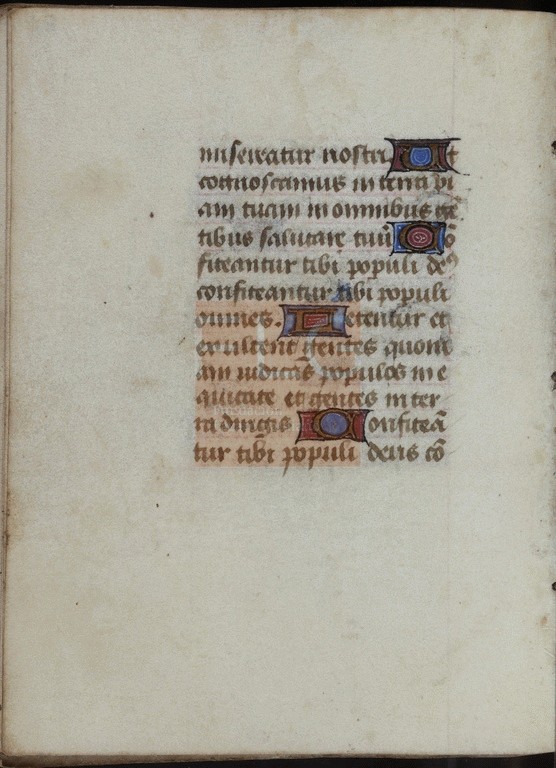 misereatur nostri. Ut
cognoscamus in terra vi
am tuam in omnibus gē
tibus salutare tuū Cō
fiteantur tibi populi de9
confiteantur tibi populi
omnes. Letentur et
exultent gentes quoni
am iudicas populos in e
quitate et gentes in ter
ra dirigis Confiteā
tur tibi populi deus cō